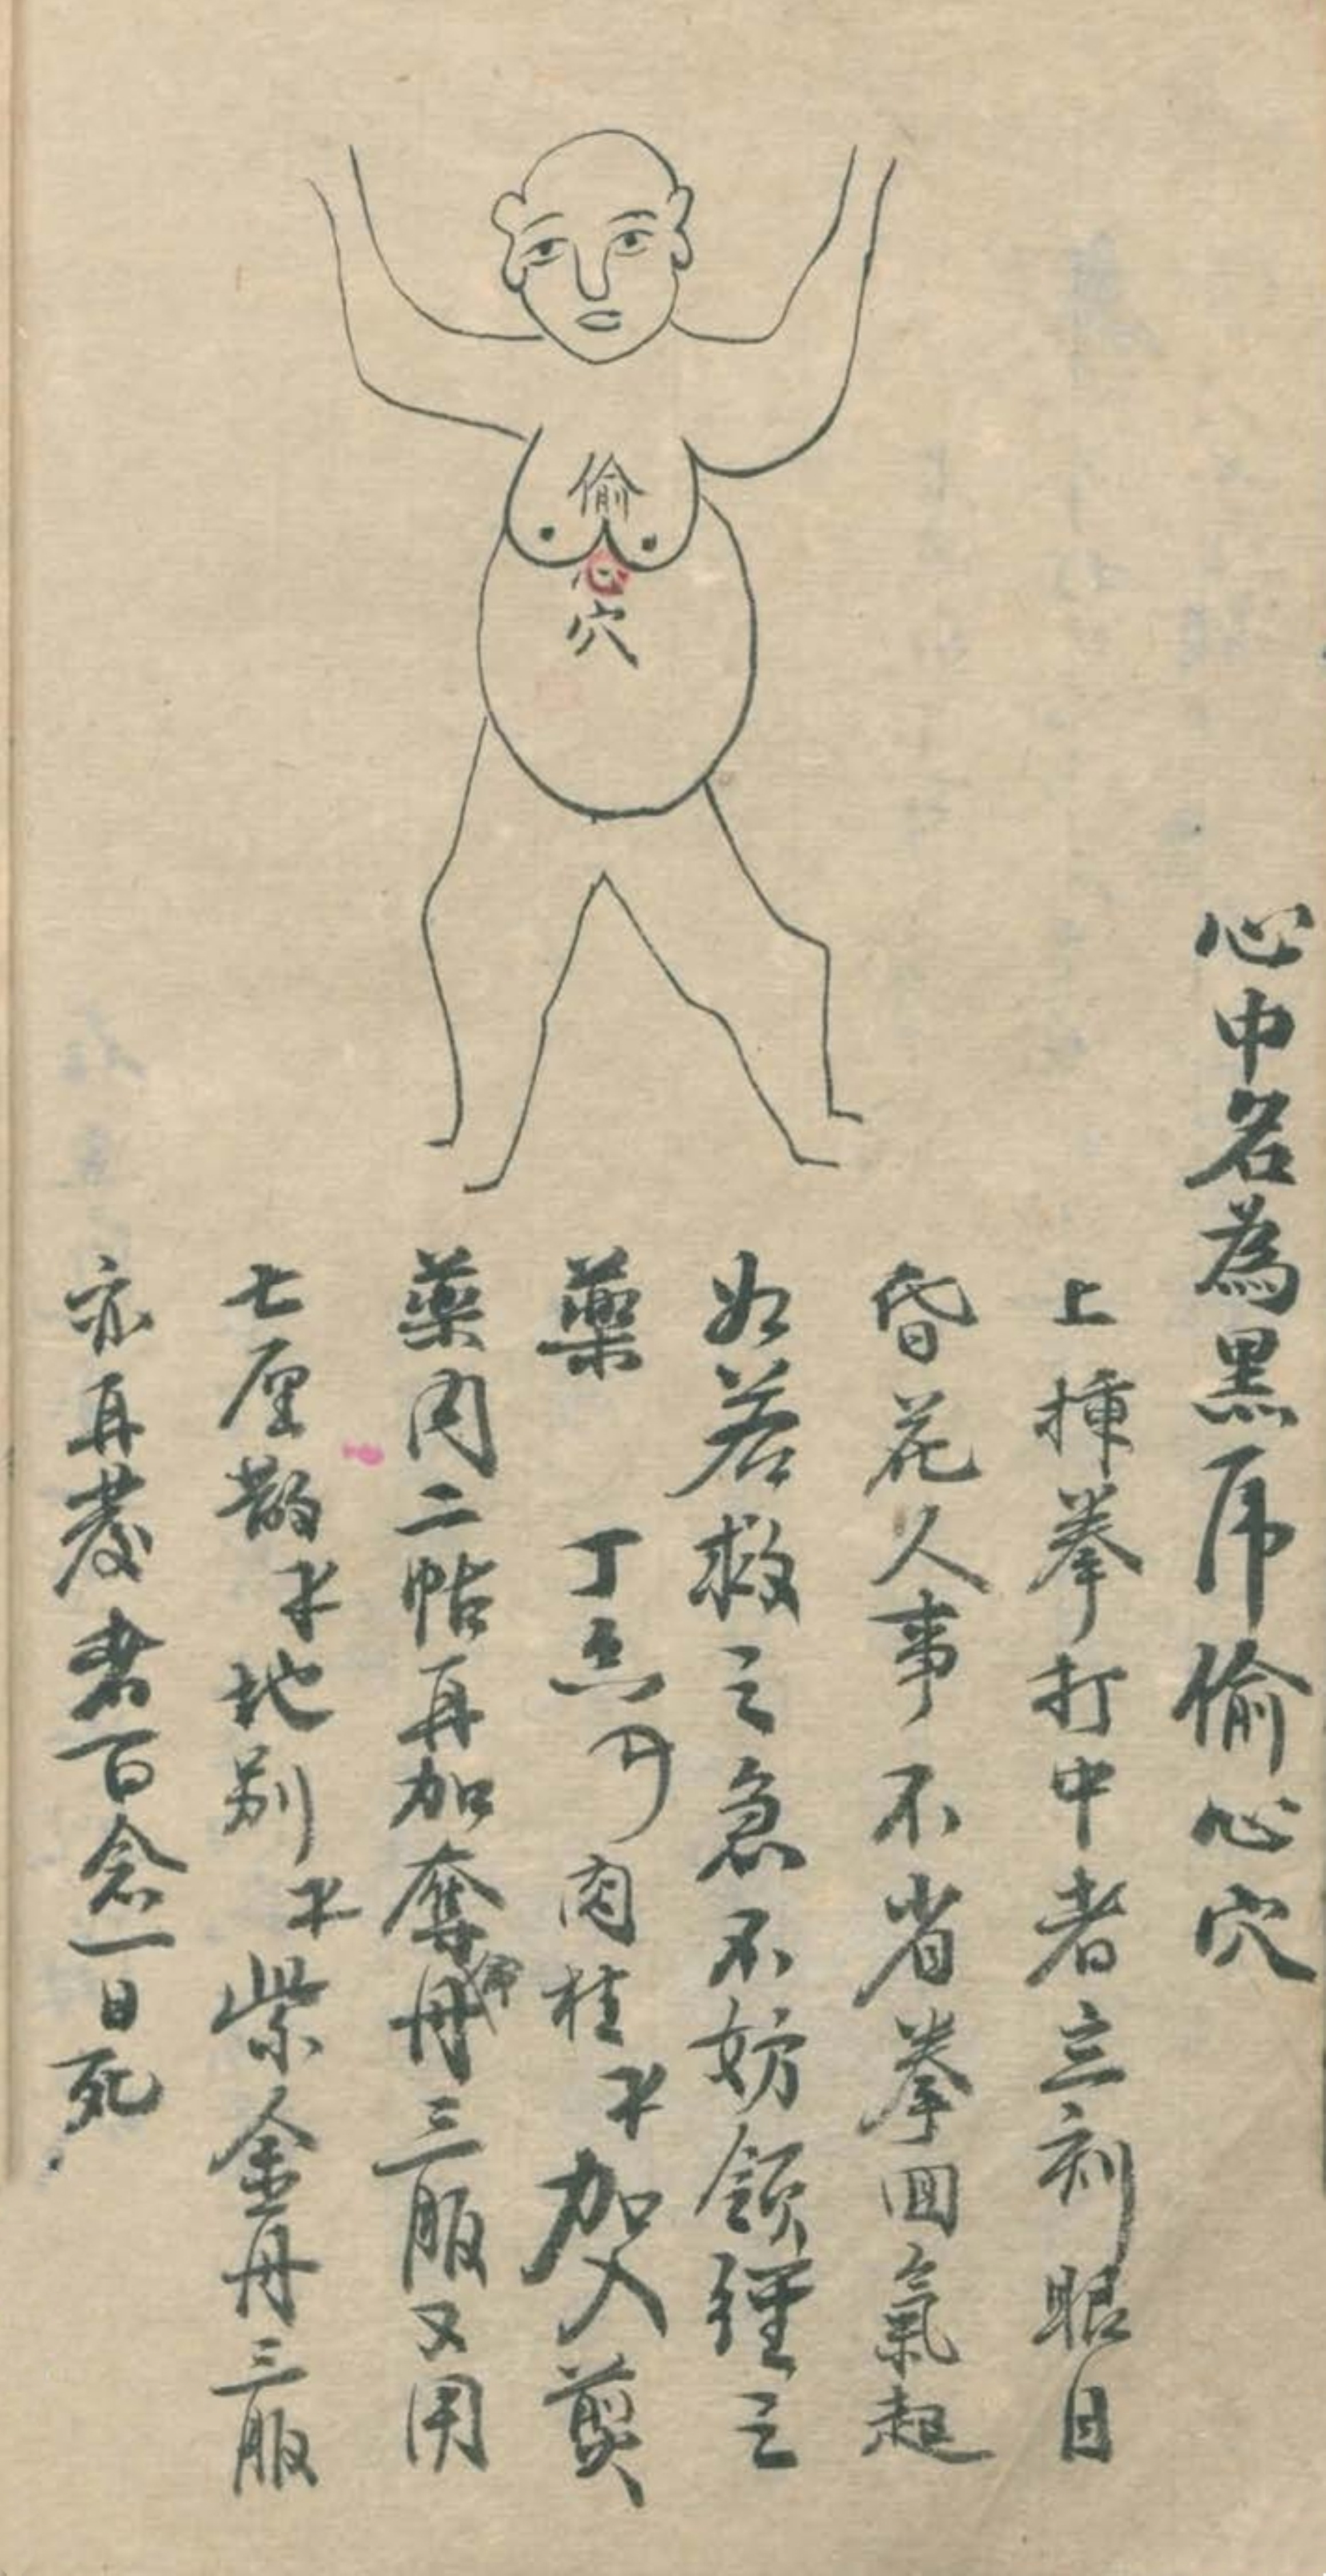 偷
心
穴
心中名為黑虎偷心穴
上揷拳打中者立刻眼目
昏花人事不省拳回氣起
如若救之急不妨領經之
藥 丁 肉桂 加入煎
藥肉二帖再加奪命丹三服又用
七厘散 地別 紫金丹三服
亦再發者百念一日死